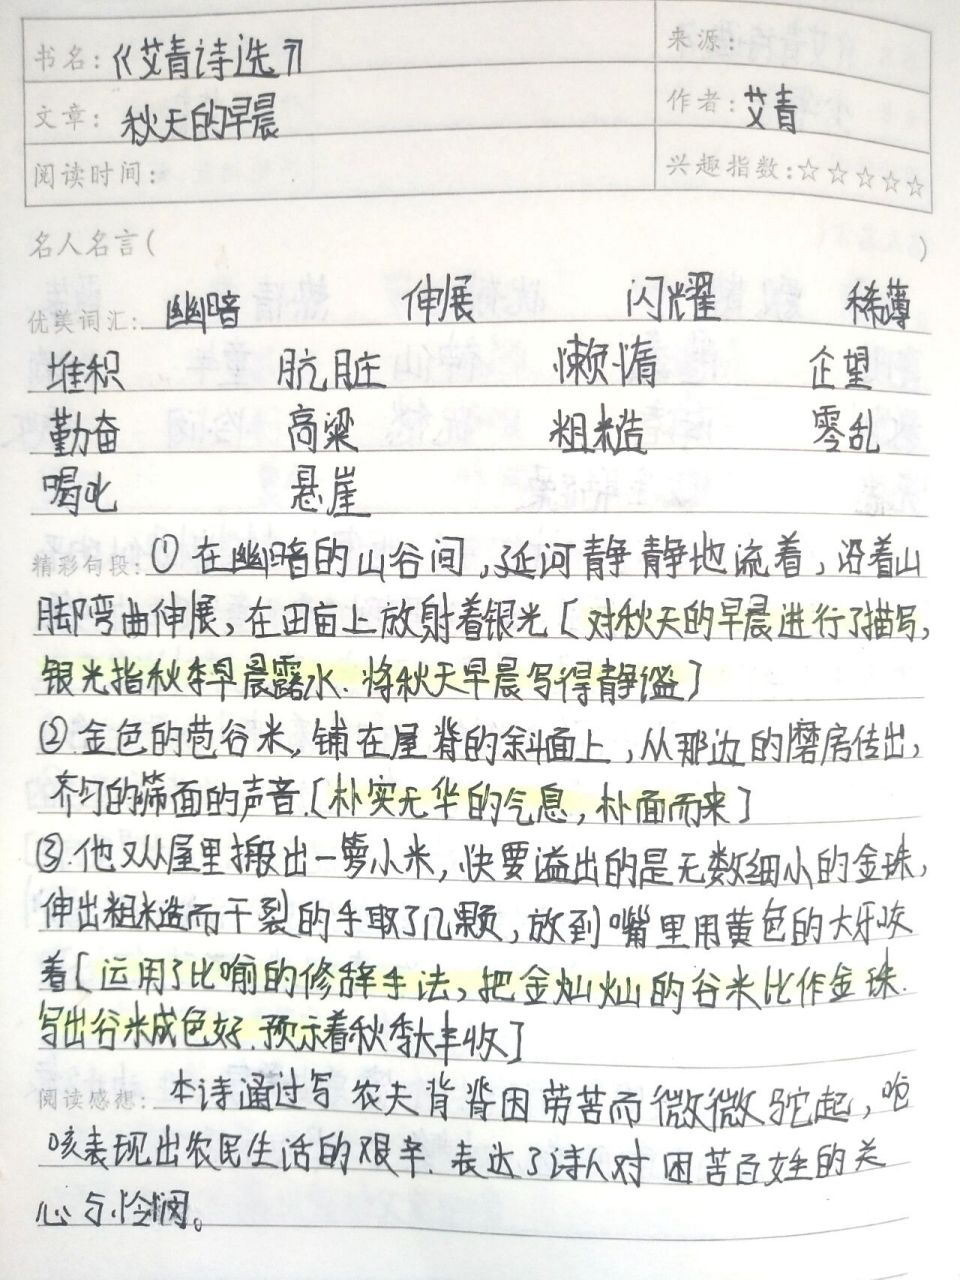 书名：《艾青诗选》
来源：
文章：秋天的早晨
作者：艾青
阅读时间：
兴趣指数：☆☆☆☆☆
名人名言（ ）
优美词汇：幽暗 伸展 闪耀 稀薄
堆积 肮脏 懒惰 企望
勤奋 高粱 粗糙 零乱
喝叱 悬崖
精彩句段：①在幽暗的山谷间，延河静静地流着，沿着山
脚弯曲伸展，在田亩上放射着银光［对秋天的早晨进行了描写，
银光指秋季早晨露水.将秋天早晨写得静谧］
②金色的苞谷米，铺在屋脊的斜面上，从那边的磨房传出，
齐匀的筛面的声音.［朴实无华的气息，朴面而来］
③.他又从屋里搬出一箩小米，快要溢出的是无数细小的金珠，
伸出粗糙而干裂的手取了几颗，放到嘴里用黄色的大牙咬
着［运用了比喻的修辞手法，把金灿灿的谷米比作金珠.
写出谷米成色好.预示着秋季大丰收］
阅读感想：本诗通过写农夫背脊因劳苦而微微驼起，咆
咳表现出农民生活的艰辛.表达了诗人对困苦百姓的关
心与怜悯。